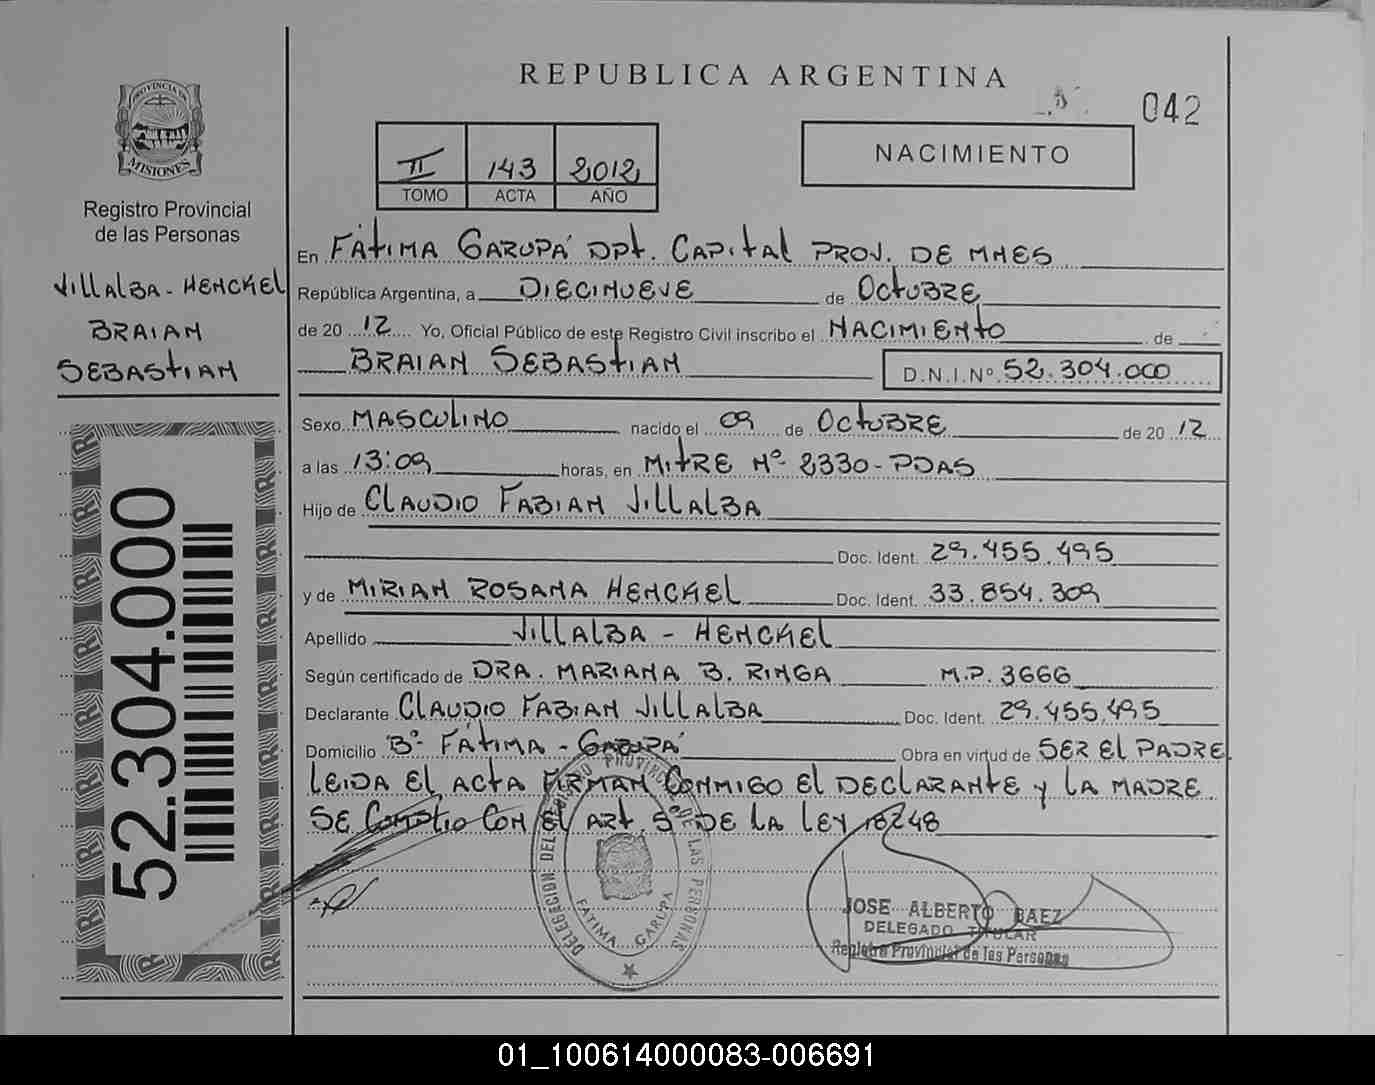 REPUBLICA ARGENTINA
042
PROVINCIA DE
MISIONES
Registro Provincial
de las Personas
VILLALBA - HENCKEL
BRAIAN
SEBASTIAN
52.304.000
II 143 2012
TOMO ACTA AÑO
NACIMIENTO
En FÁTIMA GARUPÁ DPT. CAPITAL PROV. DE MNES
República Argentina, a DIECINUEVE de OCTUBRE
de 20 12 Yo, Oficial Público de este Registro Civil inscribo el NACIMIENTO de
BRAIAN SEBASTIAN D.N.I.Nº 52.304.000
Sexo MASCULINO nacido el 09 de OCTUBRE de 20 12
a las 13:09 horas, en MITRE Nº 2330-PDAS
Hijo de CLAUDIO FABIAN VILLALBA
Doc. Ident. 29.455.495
y de MIRIAN ROSANA HENCKEL Doc. Ident. 33.854.309
Apellido VILLALBA - HENCKEL
Según certificado de DRA. MARIANA B. RINGA M.P. 3666
Declarante CLAUDIO FABIAN VILLALBA Doc. Ident. 29.455.495
Domicilio Bº FÁTIMA - GARUPÁ Obra en virtud de SER EL PADRE
LEIDA EL ACTA FIRMAN CONMIGO EL DECLARANTE Y LA MADRE
SE CON EL ART. 5 DE LA LEY 18248
DELEGACION DEL REGISTRO PROVINCIAL DE LAS PERSONAS
FATIMA GARUPA
JOSE ALBERTO BAEZ
DELEGADO TITULAR
Registro Provincial de las Personas
01_100614000083-006691